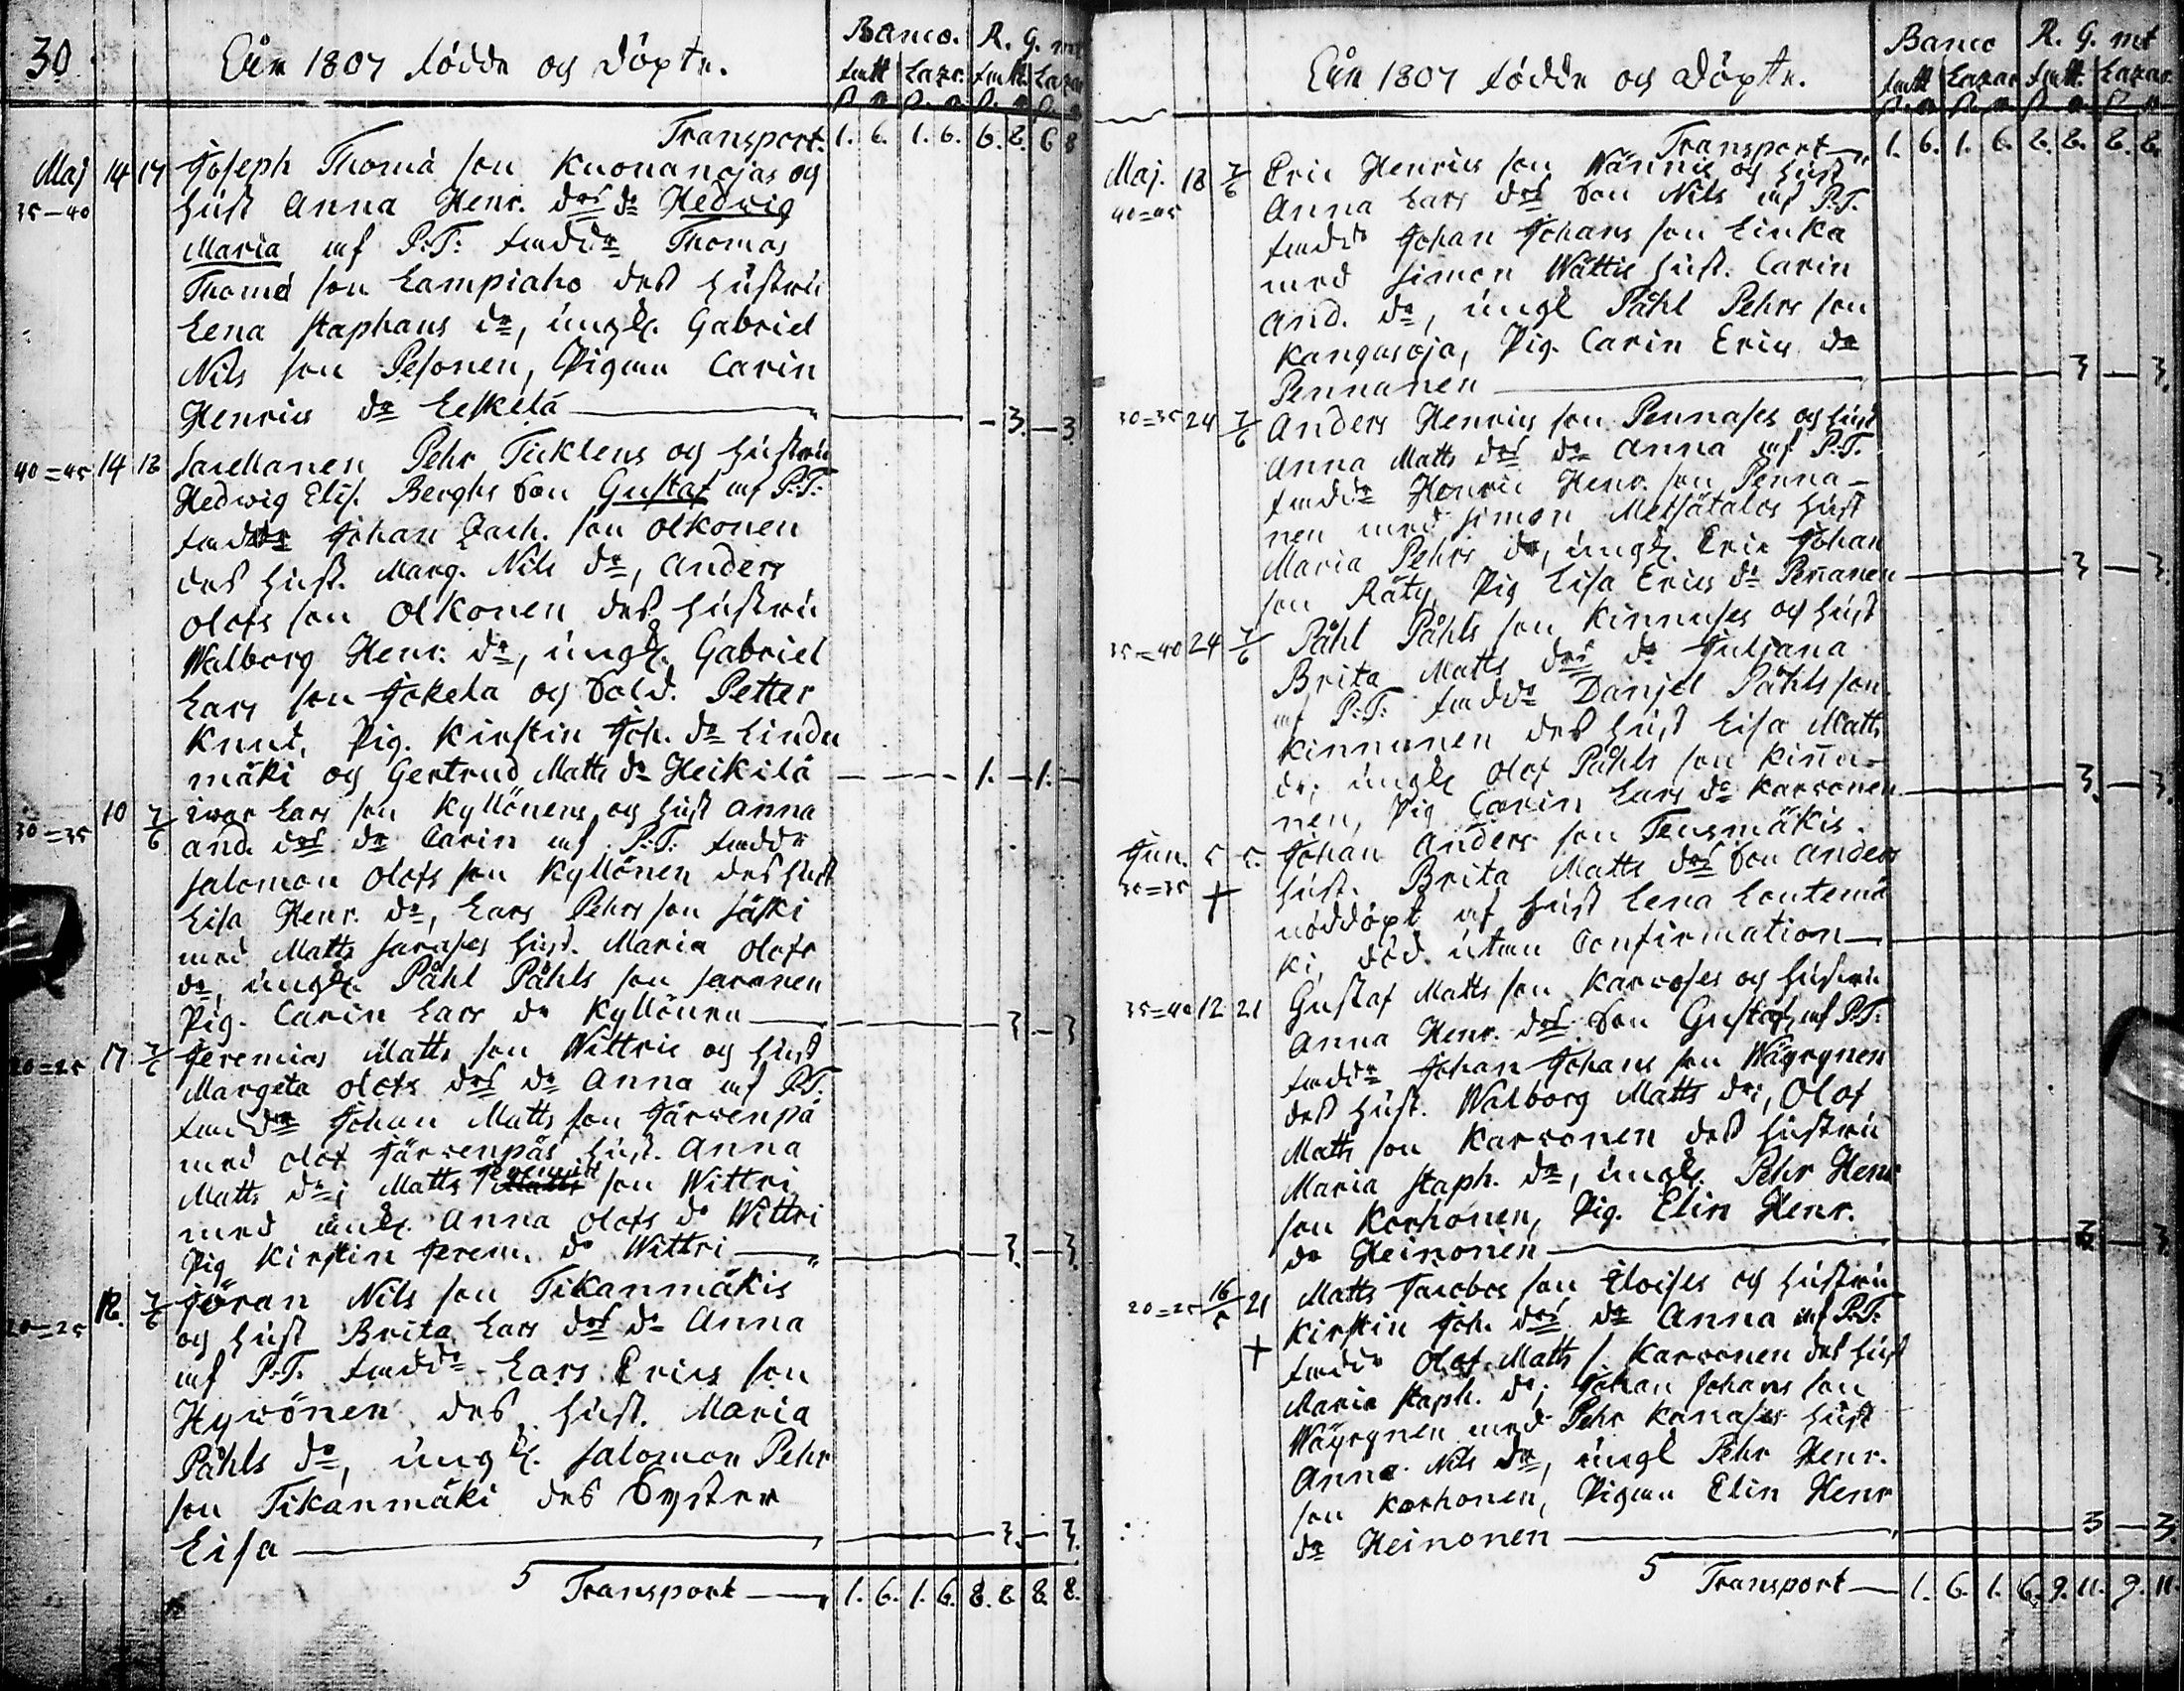 30
Åår 1807 födde og döpte.
Banco. R. G. mt
fatt Lazr. fatt Lazar
Transport. 1. 6. 1. 6. 6. 8. 6 8
Maj 14 17 Joseph Thomæ son Kuonanojas og
35-40 hust Anna Henr. drs dr Hedwig
Maria af P:T: fadde Thomas
Thomæ son Lampiaho des hustru
Lena Staphans dr, ungk. Gabriel
Nils son Pesonen, Pigan Carin
Henrics dr Leskelä — 3. — 3
40=45 14 18 Pehr Ticklens og hustru
Hedwig Elis. Berghs Son Gustaf af P:T:
fadde Johan Zach. son Olkonen
des hust. Marg. Nils dr, Anders
Olofs son Olkonen des hustru
Walborg Henr. dr, ungk. Gabriel
Lars son Jokela og Sold. Petter
Knut, Pig. Kirstin Joh. dr Linda
mäki og Gertrud Matts dr Heikilä — 1. — 1.
30=35 10 7/6 Ivar Lars son Kyllönens og hust Anna
And. drs dr Carin af P:T. fadde
Salomon Olofs son Kyllönen des hust
Lisa Henr. dr, Lars Pehrs son Säski
med Matts Sarases hust. Maria Olofs
dr, ungk. Påhl Påhls son Saranen
Pig. Carin Lars dr Kyllönen — 3 — 3
20=25 17 7/6 Jeremias Matts son Wittric og hust
Margeta Olofs drs dr Anna af P.T.
fadde Johan Matts son Järvenpä
med Olof Järvenpäs hust. Anna
Matts dr; Matts Jeremias son Wittri
med ungk. Anna Olofs dr Wittri
Pig Kirstin Jerem. dr Wittri — 3. — 3.
20=25 18. 7/6 Jöran Nils son Tikanmäkis
og hust Brita Lars drs dr Anna
af P.T. fadde Lars Erics son
Hyvönen des hust. Maria
Påhls dr, ungk. Salomon Pehr
son Tikanmäki des Syster
Lisa — 3. — 3.
5 Transport — 1. 6. 1. 6. 8. 8. 8. 8.
Åår 1807 födde og döpte.
Banco R. G. mt
fatt Lazar fatt. Lazar
Transport — 1. 6. 1. 6. 8. 8. 8. 8.
Maj. 18 7/6 Eric Henrics son Wännic og hust
40=45 Anna Lars drs Son Nils af P:T.
fadde Johan Johans son Linka
med Simon Wättis hust. Carin
And. dr, ungk Påhl Pehrs son
Kangasoja, Pig. Carin Erics dr
Pennanen — 3 — 3.
30=35 24 7/6 Anders Henrics son Pennases og hust
Anna Matts drs dr Anna af P:T.
fadde Henric Henr. son Penna-
nen med Simon Metsätalos hust
Maria Pehrs dr, ungk. Eric Johan
son Räty, Pig Lisa Erics dr Peñanen — 3 — 3.
35=40 24 7/6 Påhl Påhls son Kinnuses og hust
Brita Matts drs dr Juliana
af P:T: fadde Danjel Påhls son
Kinnunen des hust Lisa Matts
dr; ungk Olof Påhls son Kiñu-
nen, Pig Carin Lars dr Karvonen — 3. — 3.
Jun. 5 5. Johan Anders son Tensmäkis
30=35 + hust. Brita Matts drs Son Anders
nöddöpt af hust Lena Lentemä
ki, död utan Confirmation —
35=40 12 21 Gustaf Matts son Karvoses og hustru
Anna Henr. drs Son Gustaf af P.T:
fadde Johan Johans son Wäyrynen
des hust. Walborg Matts dr; Olof
Matts son Karvonen des hustru
Maria Staph. dr, ungk. Pehr Henr
son Korhonen, Pig. Elin Henr.
dr Heinonen — 3. — 3.
20=25 16/5 21 Matts Jacobs son Eloises og hustru
Kirstin Joh. drs dr Anna af P:T:
+ fadde Olof Matts s. Karvonen des hust
Maria Staph. dr; Johan Johans son
Wäyrynen med Pehr Kanases hust
Anna Nils dr, ungk Pehr Henr.
son Korhonen, Pigan Elin Henr
dr Heinonen — 3 — 3
5 Transport — 1. 6. 1. 6. 9. 11. 9. 11